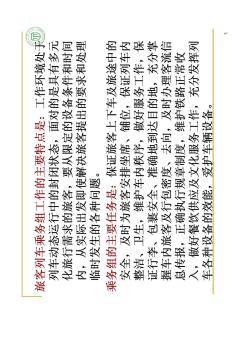 旅客列车乘务组工作的主要特点是：工作环境处于
列车动态运行中的封闭状态，面对的是具有多元
化旅行需求的旅客，要从限定的设备条件和时间
内，从实际出发即使解决旅客提出的要求和处理
临时发生的各种问题。
乘务组的主要任务是：保证旅客上下车及旅途中的
安全，及时为旅客安排坐席、铺位，保证列车内
整洁、卫生，维护车内秩序，做好服务工作，保
证行李、包裹安全、准确地到达目的地，充分掌
握车内旅客及行包密度、去向，及时办理客流信
息传报，正确执行规章制度，维护铁路正常收
入，做好餐饮供应及文化服务工作，充分发挥列
车各种设备的效能，爱护车辆设备。